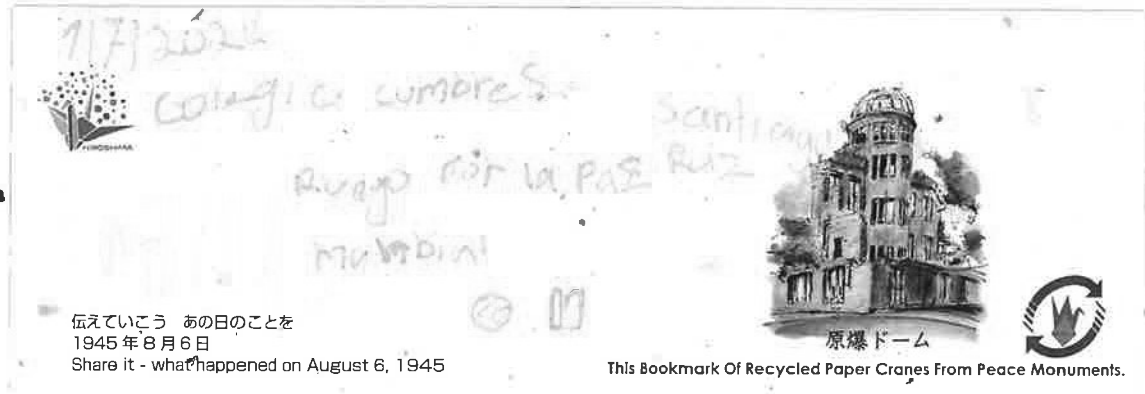 Colegio cumbres.
Santiago
Ruego Por la Paz Ruiz
HIROSHIMA
伝えていこう あの日のことを
1945年8月6日
Share it - what happened on August 6, 1945
原爆ドーム
This Bookmark Of Recycled Paper Cranes From Peace Monuments.